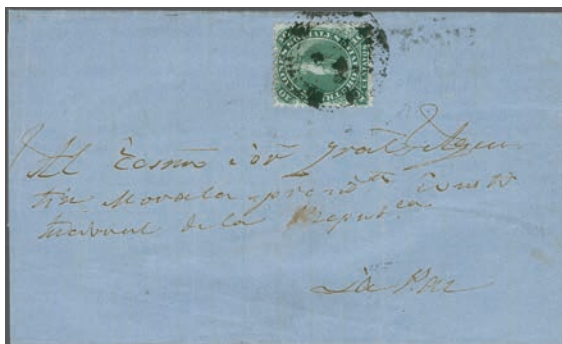 Al Exsmo Sor Gral Agus
tin Morales presidte Consti
tucional de la Repub.ca
La Paz